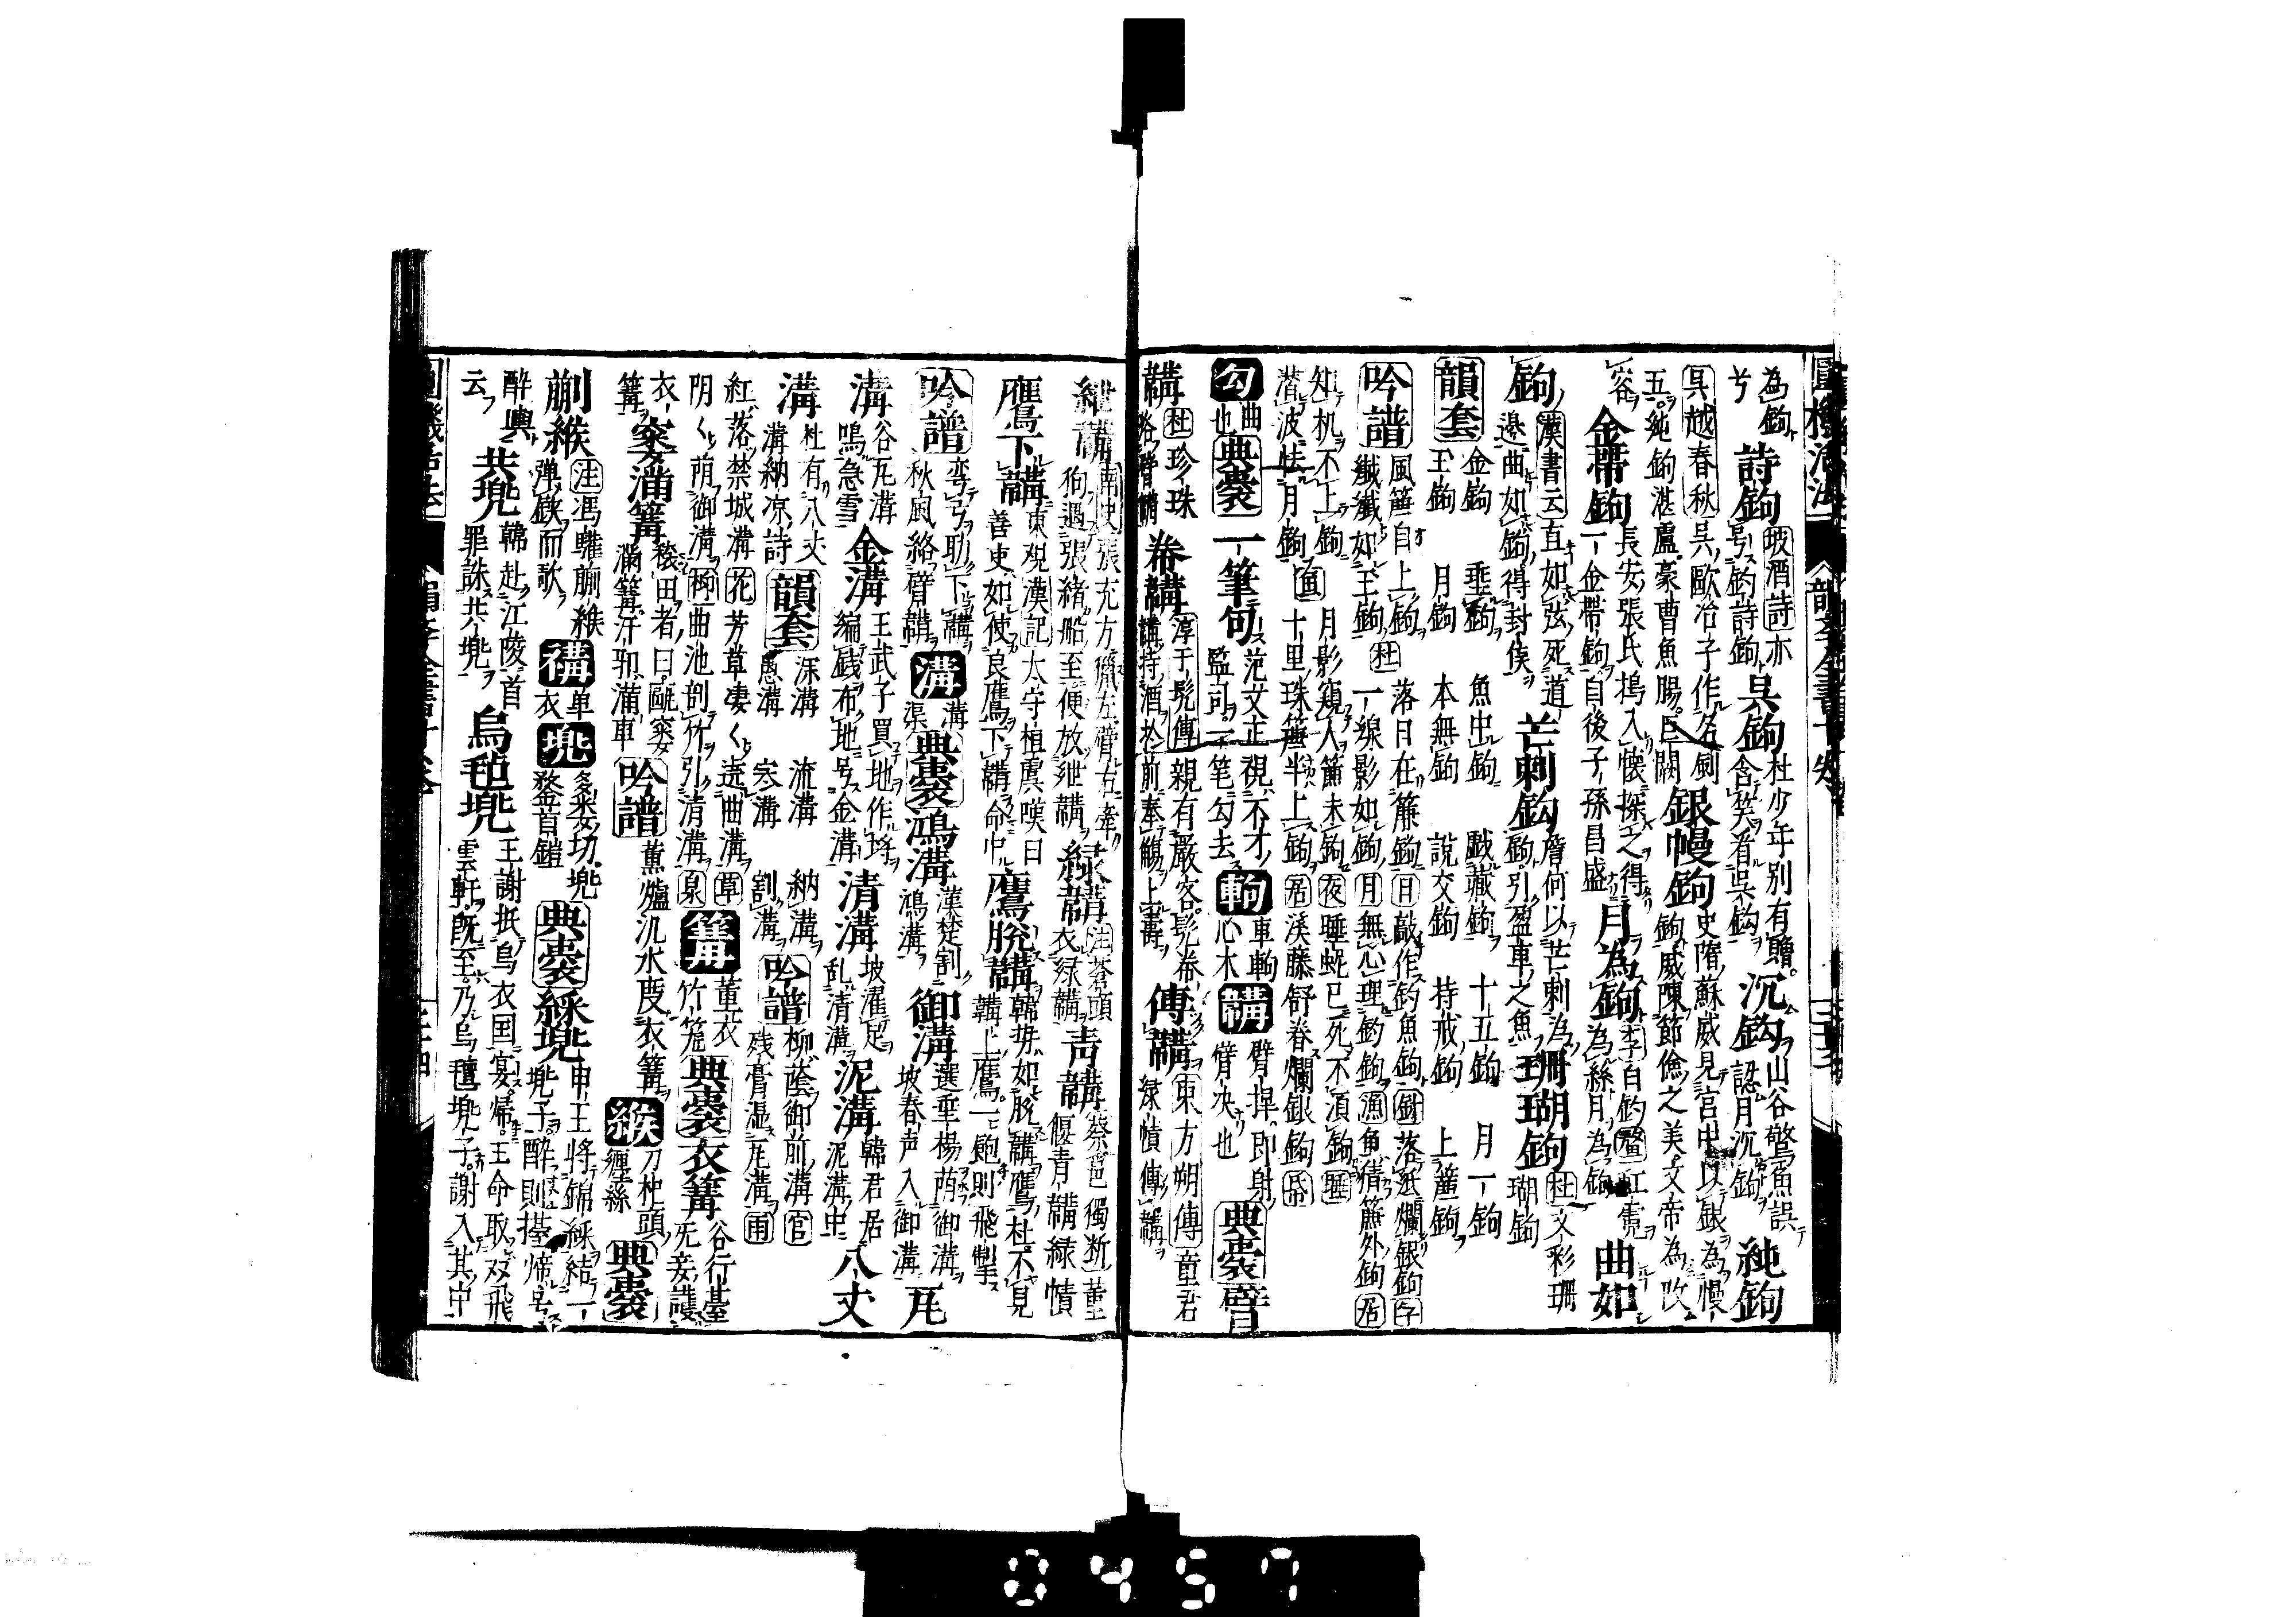 為鉤
兮
詩鉤
坡酒詩亦
号釣詩鉤
呉鉤
杜少年別有贈
含笑看呉鉤
沉鉤
山谷驚魚誤
認月沉鉤
純鉤
呉越春秋呉歐冶子作名劍
五純鉤湛盧豪曹魚腸巨闕
銀幔鉤
史隋蘇威見宮中以銀為幔
鉤威陳節儉之美文帝為改
容
金帶鉤
長安張氏搗入懷探之得
一金帶鉤自後子孫昌盛
月為鉤
李白釣鰲虹霓
為絲月為鉤
曲如
鉤
漢書云直如弦死道
邊曲如鉤得封侯
芒刺鉤
詹何以芒刺為
鉤引盈車之魚
珊瑚鉤
杜文彩珊
瑚鉤
韻套
金鉤 垂鉤 魚虫鉤 戲藏鉤 十五鉤 月一鉤
玉鉤 月鉤 本無鉤 說交鉤 持戒鉤 上簾鉤
吟譜
風簾自上鉤 落日在簾鉤 日敲作釣魚鉤 落紙爛銀鉤字
纖纖如玉鉤杜 一線影如鉤月無心理釣鉤漁魚倩簾外鉤居
知机不上鉤 月影窺人簾未鉤夜睡蛇已死不須鉤睡
潛波怯月鉤魚十里珠簾半上鉤居溪藤舒卷爛銀鉤
勾
曲
也
典裳
一筆句
范文正視不才
監司一笔勾去
軥
車軥
心木
韝
臂捍即射
臂决也
典裳
臂
韝
杜珍珠
絡臂韝
卷韝
淳于髡傳親有嚴客髡卷
韝持酒於前奉觴上壽
傳韝
東方朔傳董君
綠幘傳韝
紲韝
南史張充方獵左臂右牽
狗遇張緒船至便放紲韝
綠韝
注蒼頭
衣綠韝
青韝
蔡邕獨斷董
偃青韝綠幘
鷹下韝
東觀漢記太守桓虞嘆曰
善吏如使良鷹下韝命中
鷹脫韝
韓毋如脫韝鷹杜不見
韝上鷹一飽則飛掣
吟譜
彎弓効下韝
秋風絡臂韝
溝
溝
渠
典裳
鴻溝
漢楚割
鴻溝
御溝
選垂楊蔭御溝
坡春声入御溝
瓦
溝
谷瓦溝
鳴急雪
金溝
王武子買地作埒
編錢布地号金溝
清溝
坡濯足
乱清溝
泥溝
韓君居
泥溝中
八丈
溝
杜有八丈
溝納凉詩
韻套
深溝 流溝 納溝
怨溝 寒溝 割溝
吟譜
柳蔭御前溝官
残膏湿瓦溝雨
紅落禁城溝花芳草凄く遶曲溝草
陰く蔭御溝柳曲池剖竹引清溝泉
篝
薫衣
竹籠
典裳
衣篝
谷行臺
无妾護
衣
窭滿篝
穰田者曰甌窭
滿篝汙邪滿車
篝
吟譜
薰爐沉水度衣篝
緱
刀杜頭
纏絲
典裳
蒯緱
注馮驩蒯緱
彈鋏而歌
褠
单
衣
兜
鍪首鎧
典裳
綵兜
申王將錦綵結一
兜子醉則擡帰号
醉輿
云
共兜
韓赴江陵首
罪誅共兜
烏毡兜
王謝抵烏衣国宴帰王命取双飛
雲軒既至乃烏氊兜子謝入其中
0457